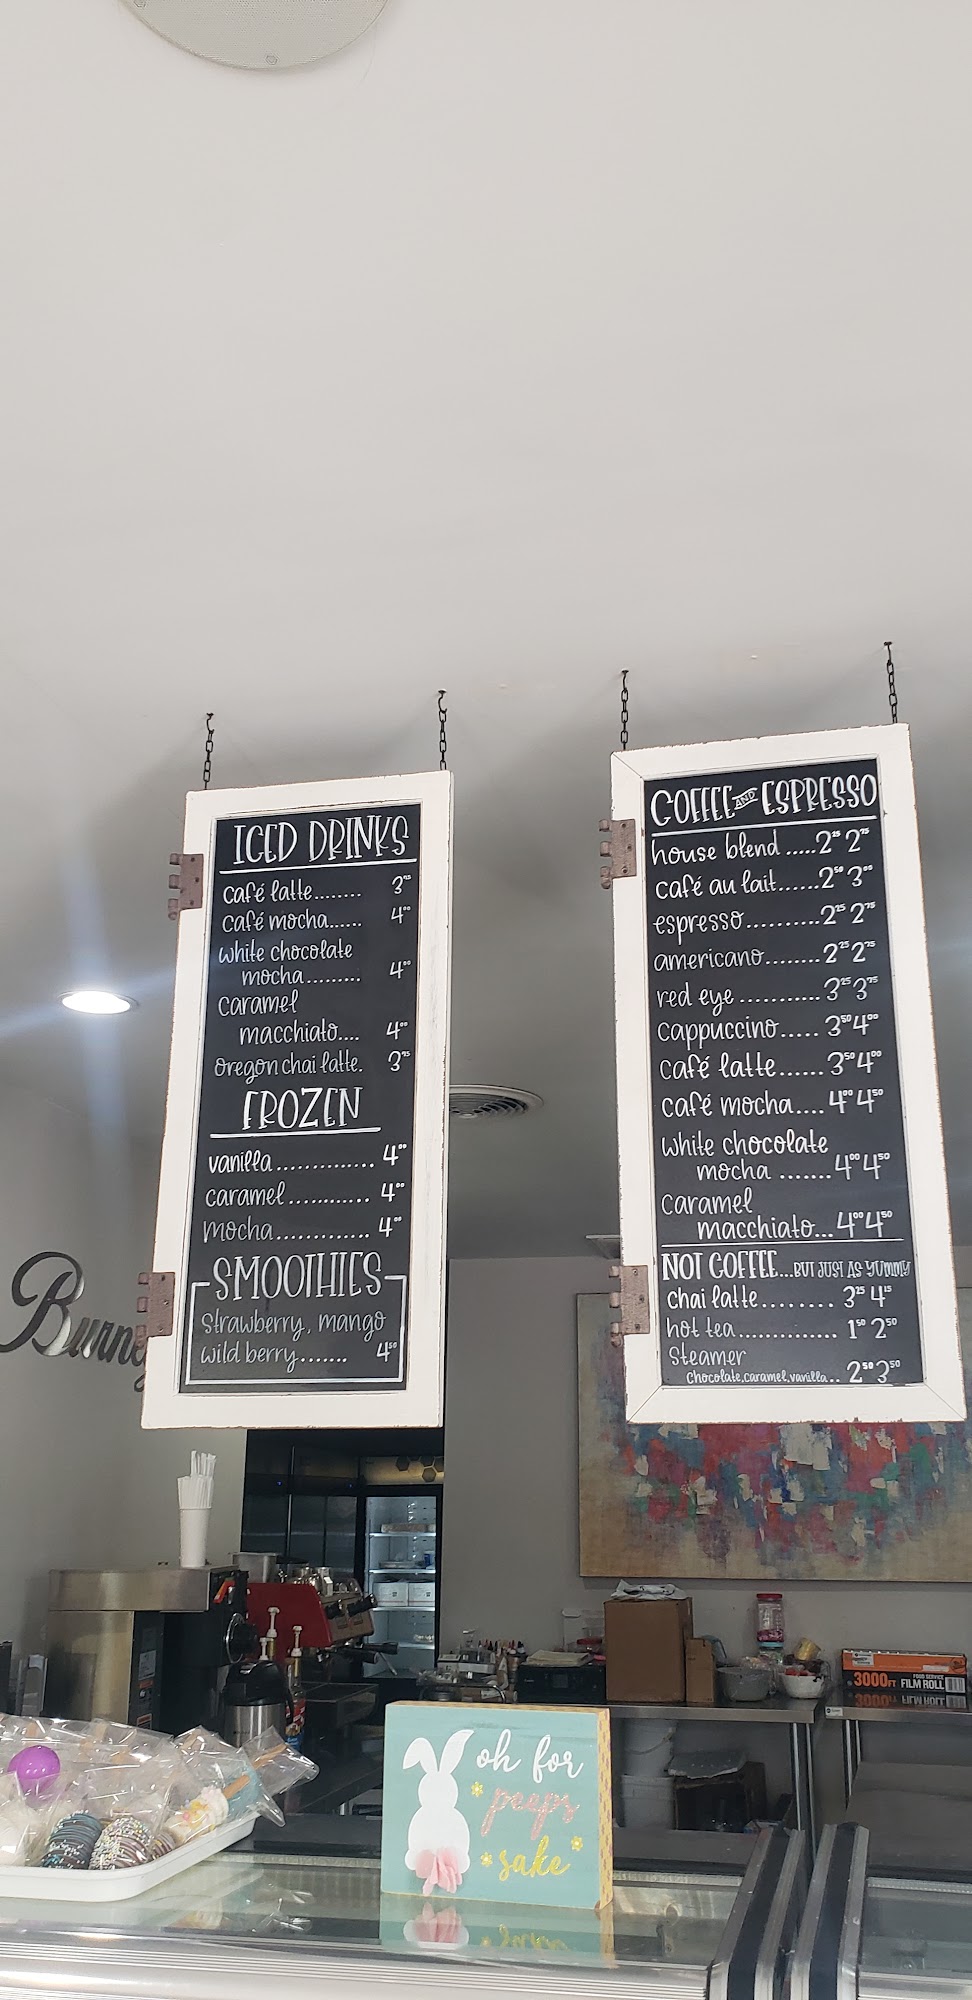 ICED DRINKS
café latte........ 3⁷⁵
café mocha...... 4⁰⁰
white chocolate
mocha.......... 4⁰⁰
caramel
macchiato.... 4⁰⁰
oregon chai latte. 3⁷⁵
FROZEN
vanilla.............. 4⁰⁰
caramel............ 4⁰⁰
mocha............. 4⁰⁰
SMOOTHIES
strawberry, mango
wild berry....... 4⁵⁰
COFFEE AND ESPRESSO
house blend .....2²⁵ 2⁷⁵
café au lait......2⁵⁰ 3⁰⁰
espresso..........2²⁵ 2⁷⁵
americano........2²⁵ 2⁷⁵
red eye ............3²⁵ 3⁷⁵
cappuccino..... 3⁵⁰ 4⁰⁰
café latte......3⁵⁰ 4⁰⁰
café mocha....4⁰⁰ 4⁵⁰
white chocolate
mocha .......4⁰⁰ 4⁵⁰
caramel
macchiato...4⁰⁰ 4⁵⁰
NOT COFFEE...BUT JUST AS YUMMY
chai latte........ 3²⁵ 4¹⁵
hot tea.............. 1⁵⁰ 2⁵⁰
steamer
chocolate, caramel, vanilla.. 2⁵⁰ 3⁵⁰
Burney
3000FT FOOD SERVICE
FILM ROLL
oh for
peeps
sake